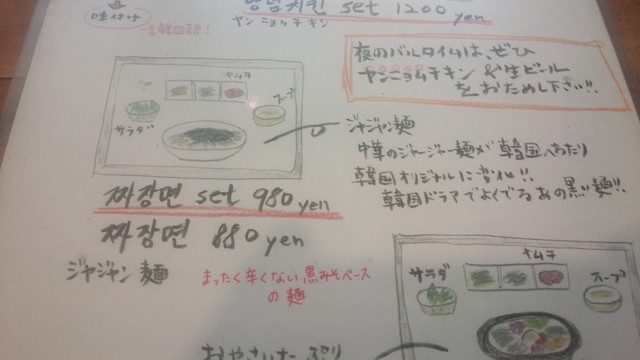 味付け
양념치킨 set 1200 yen
ヤンニョムチキン
夜のバルタイムは、ぜひ
ヤンニョムチキン &生ビール
をおためし下さい!!
キムチ
サラダ
スープ
ジャジャン麺
中華のジャージャー麺が韓国へわたり
韓国オリジナルに変化!!
韓国ドラマでよくでるあの黒い麺!!
짜장면 set 980 yen
짜장면 880 yen
ジャジャン麺
まったく辛くない黒みそベース
の麺
キムチ
サラダ
スープ
おやさいたっぷり